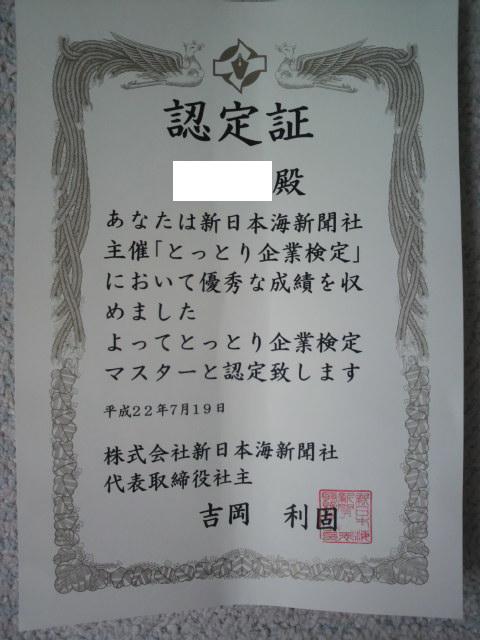 認定証
殿
あなたは新日本海新聞社
主催「とっとり企業検定」
において優秀な成績を収
めました
よってとっとり企業検定
マスターと認定致します
平成22年7月19日
株式会社新日本海新聞社
代表取締役社主
吉岡 利固